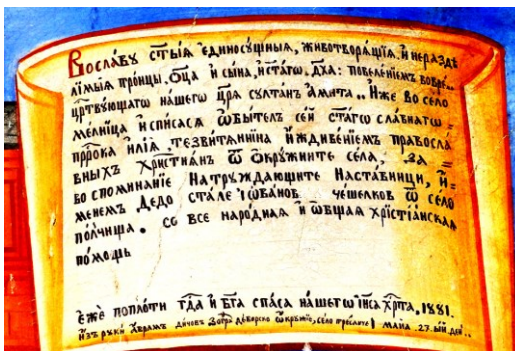 Вославѹ ст҃ыѧ единосѹщныѧ, животворѧщїѧ, и нераздѣ
лїмыѧ трои́цы. ѿц҃а и сы́на, и ст҃агѡ. дх҃а: повеленїемъ во вре..
цр҃твѹющагѡ нашегѡ цр҃ѧ сѹлтанъ амита.. Иже во село
мелница и списасѧ ѡбытелъ сей ст҃агѡ славнагѡ =
прⷪ҇рока илїѧ, тезвитѧнина и иждивенїемъ правосла
вныхъ христианъ ѿ ѡкрѹжните села, за =
во споминанїе натрѹждающите наставници, и=
менемъ дедо стале іѡванов чешелков ѿ село
полчища. со все народнаѧ и ѡбщаѧ хрїстїанскаѧ
помощь
еже поплоти гд҃а и бг҃а спаса нашегѡ їи҃са хр҃та, 1881.
изъ рѹки аврамъ дичовъ зогрⷶ҇ деборско ѡкрѹжїе, село 1 маиа. 27. ый ден..